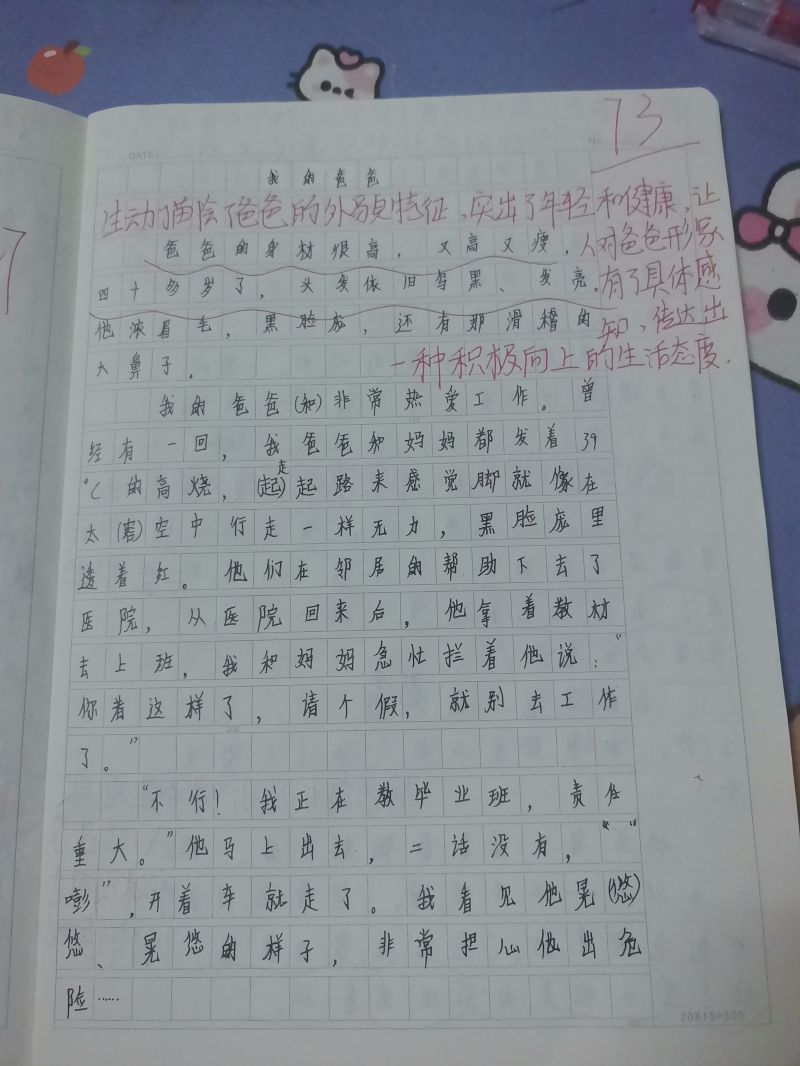 73
DATE:
No
我的爸爸
生动描绘了爸爸的外貌特征、突出了年轻和健康,让
人对爸爸形象
有了具体感
知、传达出
一种积极向上的生活态度.
爸爸的身材很高,又高又瘦,
四十多岁了,头发依旧驾黑、发亮。
他浓眉毛,黑脸庞,还有那滑稽的
大鼻子.
我的爸爸(和)非常热爱工作。曾
经有一回,我爸爸和妈妈都发着39
°C的高烧,(起)走起路来感觉脚就像在
太(窖)空中行走一样无力,黑脸庞里
透着红。他们在邻居的帮助下去了
医院,从医院回来后,他拿着教材
去上班,我和妈妈急忙拦着他说:“
你着这样了,请个假,就别去工作
了。”
“不行!我正在教毕业班,责任
重大。”他马上出去,二话没有,“
嘭”,开着车就走了。我看见他晃(悠)
悠、晃悠的样子,非常担心他出危
险……
20X15=300